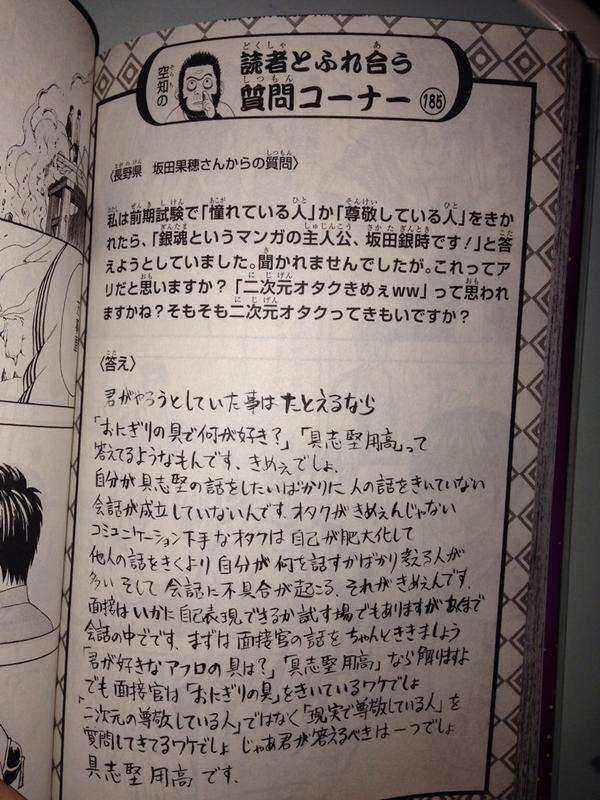 空知の
読者とふれ合う
質問コーナー 185
〈長野県 坂田果穂さんからの質問〉
私は前期試験で「憧れている人」か「尊敬している人」をきか
れたら、「銀魂というマンガの主人公、坂田銀時です!」と答
えようとしていました。聞かれませんでしたが。これってア
リだと思いますか?「二次元オタクきめぇww」って思われ
ますかね?そもそも二次元オタクってきもいですか?
〈答え〉
君がやろうとしていた事は たとえるなら
「おにぎりの具で何が好き?」「具志堅用高」って
答えてるようなもんです、きめぇでしょ、
自分が具志堅の話をしたいばかりに 人の話をきいていない
会話が成立していないんです、オタクがきめぇんじゃない
コミュニケーション下手なオタクは 自己が肥大化して
他人の話をきくより 自分が何を話すかばかり考える人が
多い そして 会話に不具合が起こる、それがきめぇんです、
面接はいかに自己表現できるか試す場でもありますが あくまで
会話の中でです、まずは面接官の話をちゃんとききましょう
「君が好きなアフロの具は?」「具志堅用高」なら解りますよ
でも面接官は「おにぎりの具」をきいているワケでしょ
「二次元の尊敬している人」ではなく「現実で尊敬している人」を
質問してきてるワケでしょ じゃあ君が答えるべきは一つでしょ
具志堅用高 です、